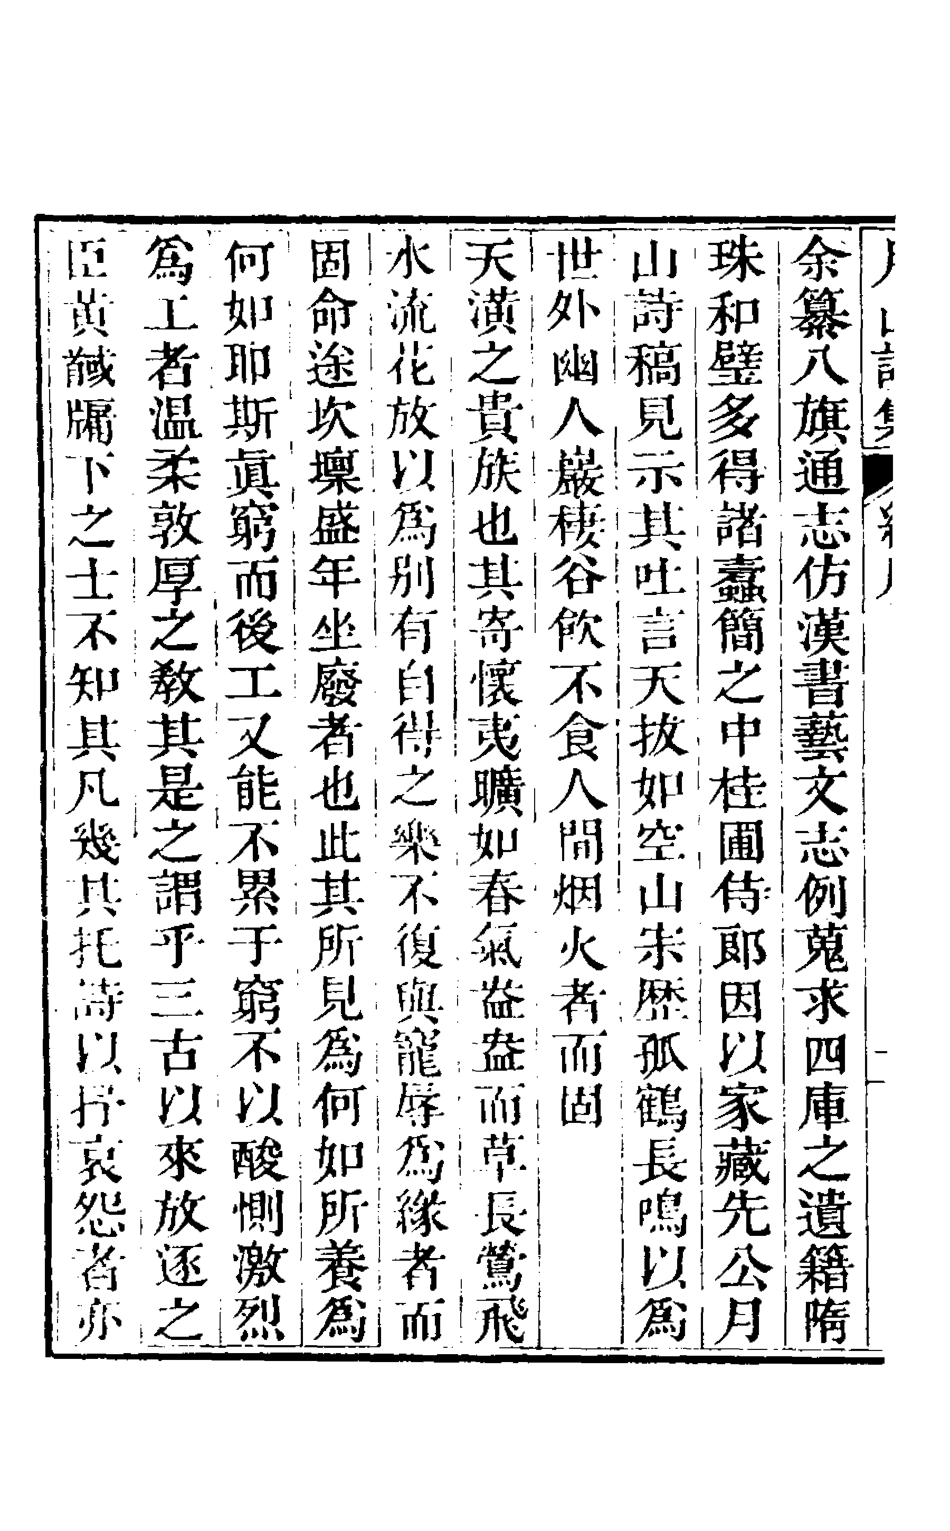 月山詩集
余纂八旗通志仿漢書藝文志例蒐求四庫之遺籍隋
珠和璧多得諸蠹簡之中桂圃侍郎因以家藏先公月
山詩稿見示其吐言天拔如空山宋歷孤鶴長鳴以爲
世外幽人巖棲谷飲不食人間烟火者而固
天潢之貴族也其寄懷夷曠如春氣盎盎而草長鶯飛
水流花放以爲別有自得之樂不復與寵辱爲緣者而
固命途坎壈盛年坐廢者也此其所見爲何如所養爲
何如耶斯眞窮而後工又能不累于窮不以酸惻激烈
爲工者溫柔敦厚之教其是之謂乎三古以來放逐之
臣黃馘牖下之士不知其凡幾其托詩以抒哀怨者亦